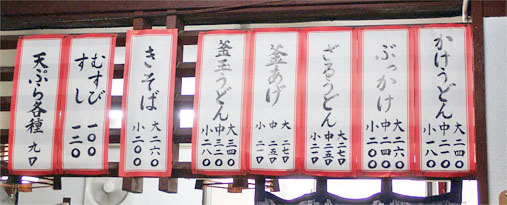 かけうどん
大 二六〇
中 二四〇
小 一八〇
ぶっかけ
大 二六〇
中 二四〇
小 二〇〇
ざるうどん
大 二七〇
中 二五〇
小 二一〇
釜あげ
大 二七〇
中 二五〇
小 二一〇
釜玉うどん
大 三四〇
中 三二〇
小 二八〇
きそば
大 二六〇
小 二〇〇
むすび 一〇〇
すし 一二〇
天ぷら各種 九〇